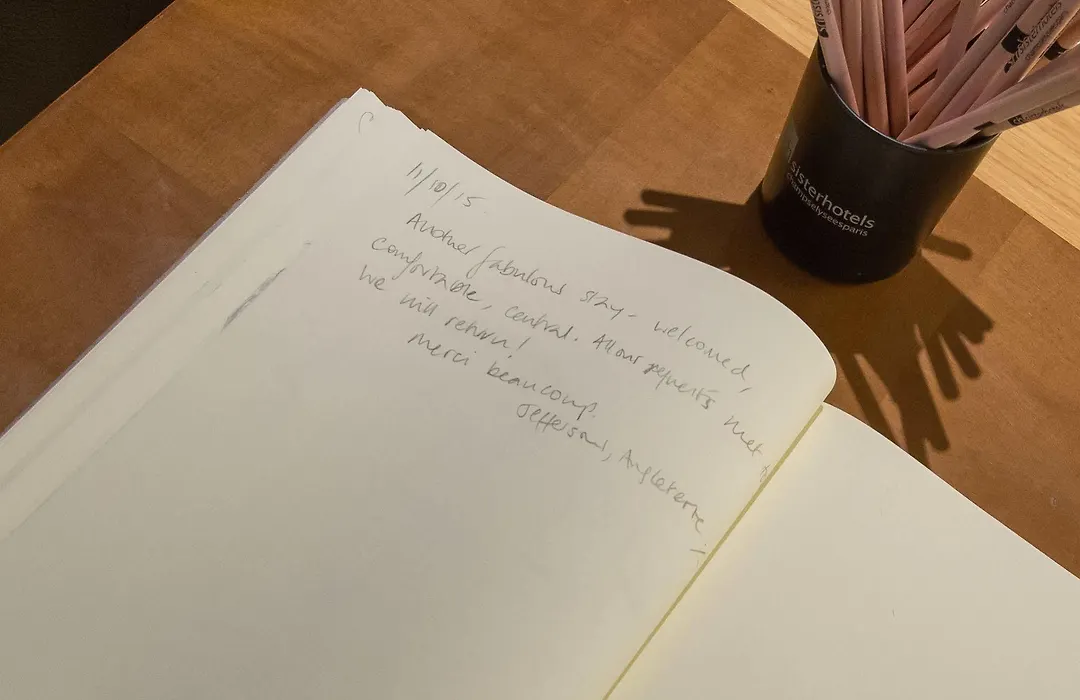 11/10/15.
Another fabulous stay - welcomed,
comfortable, central. All our requests met
We will return!
Merci beaucoup.
Jeffersons, Angleterre
sisterhotels
champselyséesparis